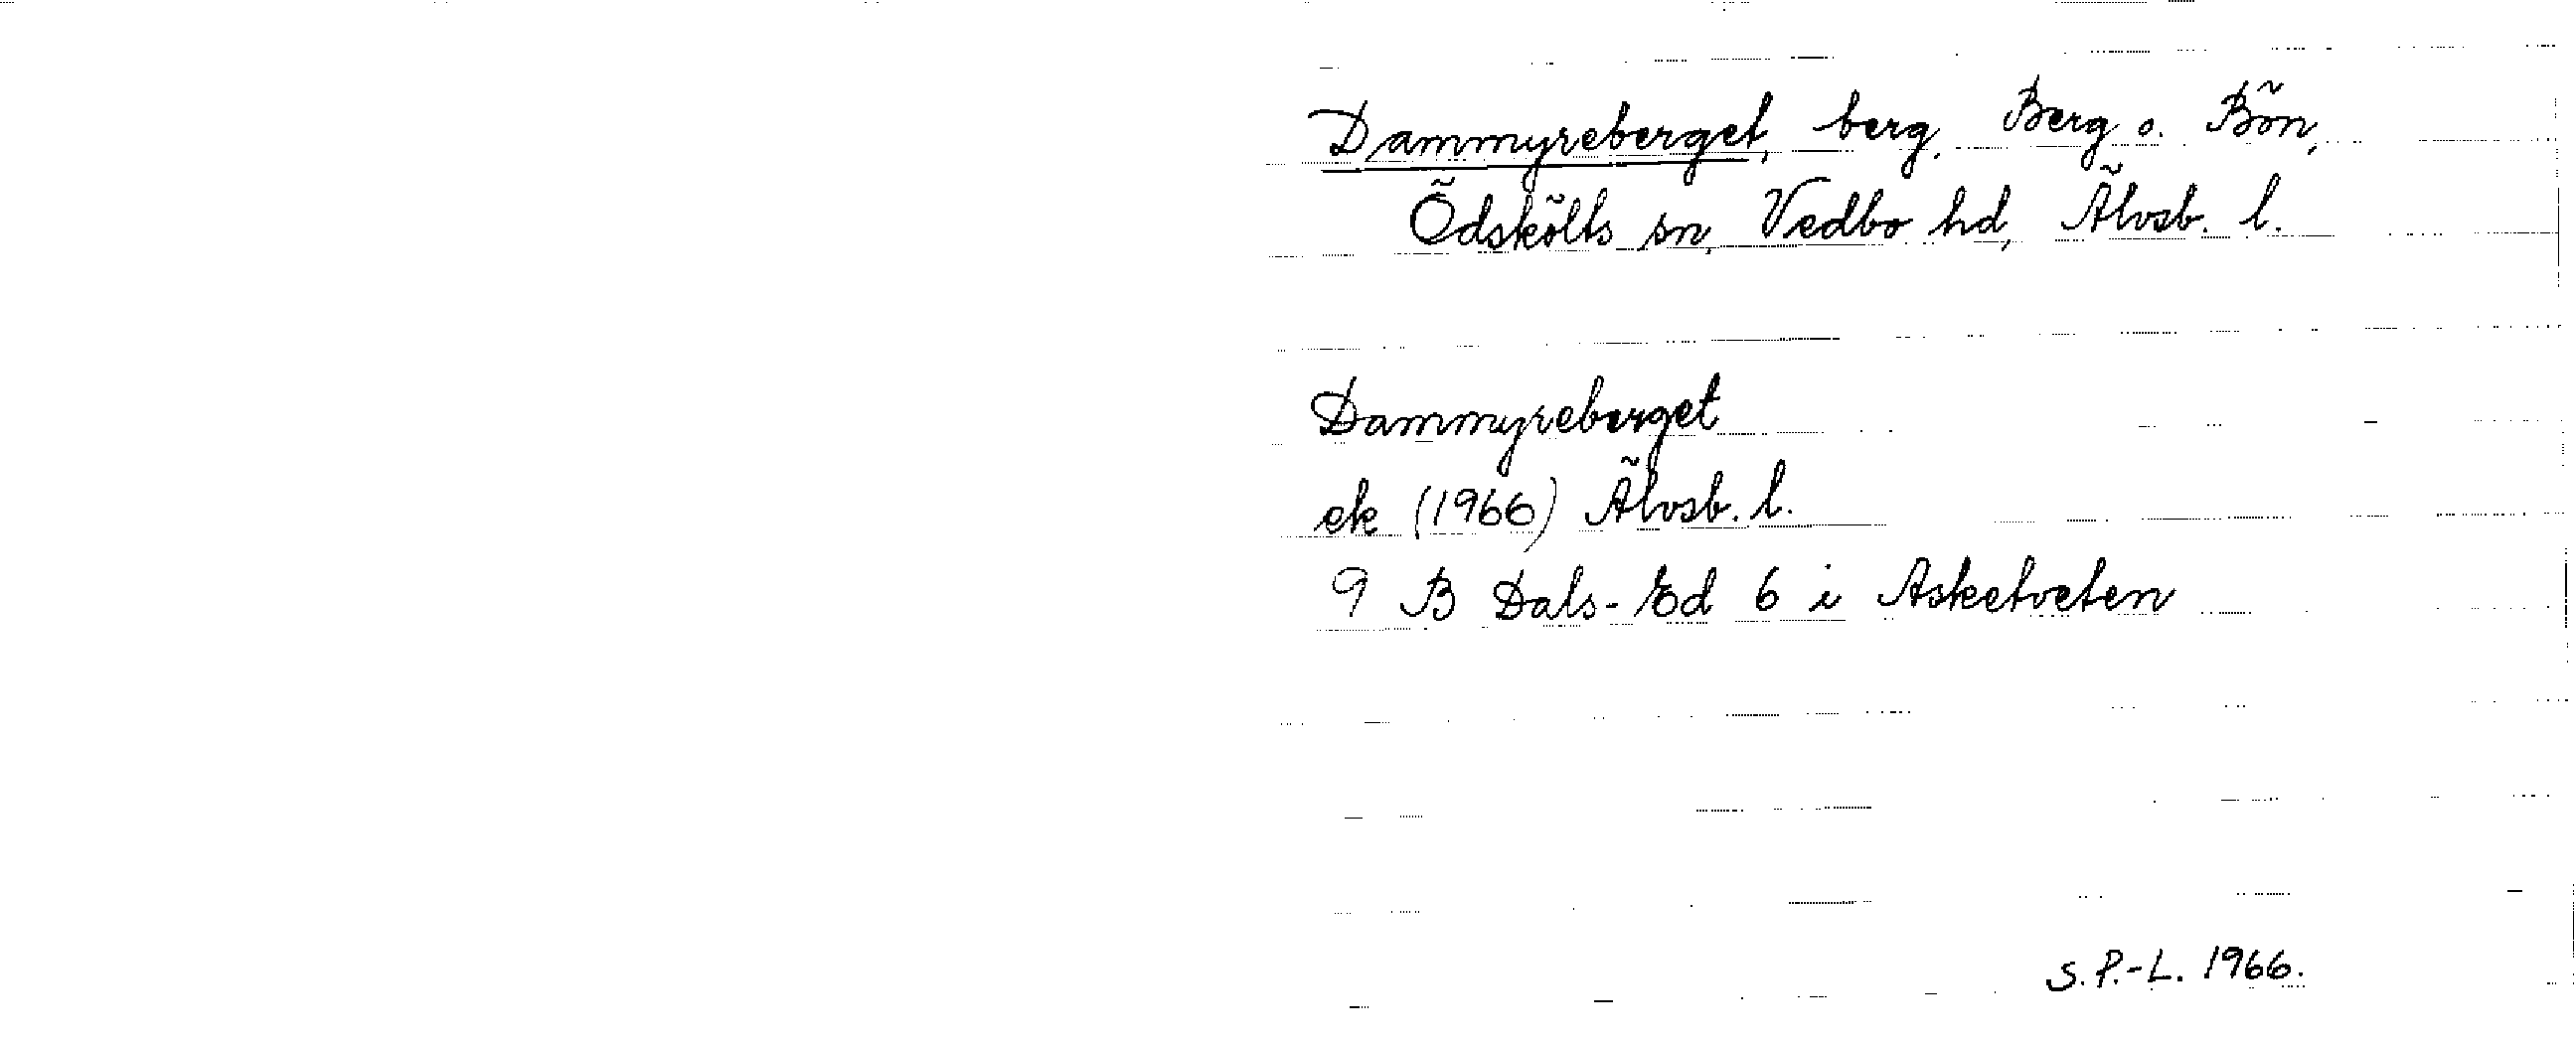 Dammyreberget, berg, Berg o. Bön,
Ödskölts sn, Vedbo hd, Älvsb. l.
Dammyreberget
ek (1966) Älvsb. l.
9 B Dals-Ed 6 i Asketveten
S.P.-L. 1966.